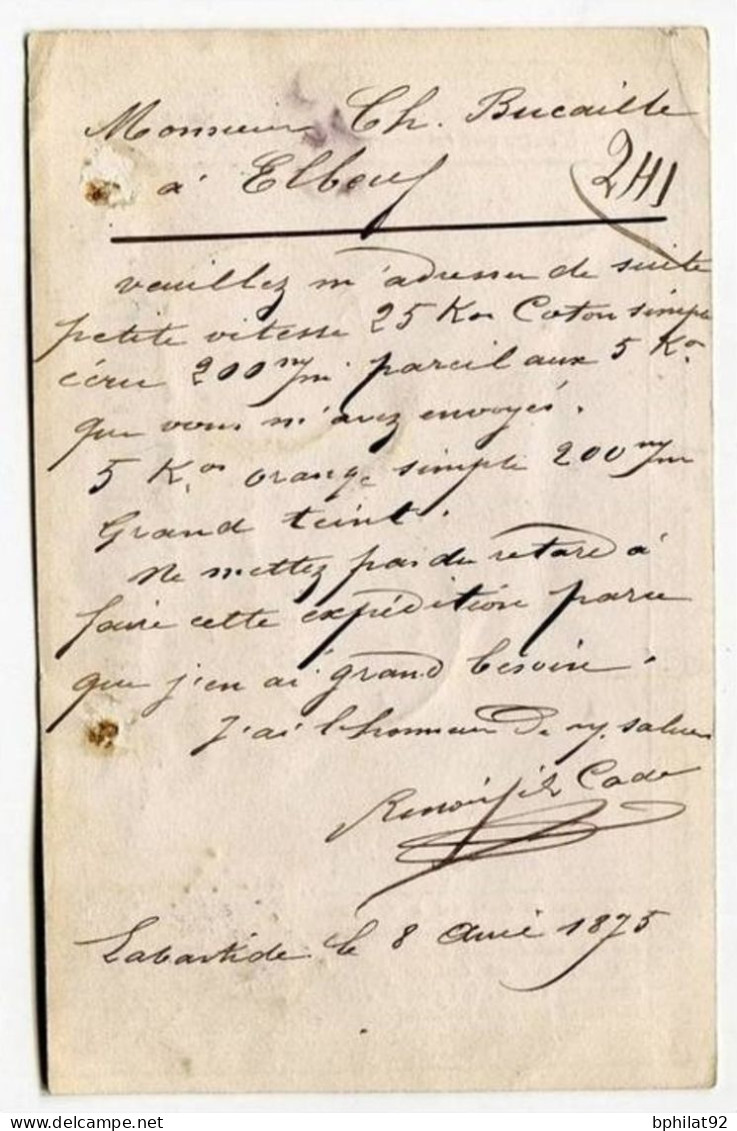 Monsieur Ch. Bucaille
à Elbeuf
241
veuillez m'adresser de suite
petite vitesse 25 Kos Coton simple
écru 200 m/m pareil aux 5 Kos
que vous m'avez envoyés.
5 Kos orange simple 200 m/m
Grand teint.
Ne mettez pas du retard à
faire cette expédition parce
que j'en ai grand besoin.
J'ai l'honneur De v. saluer
fils Cadet
Labastide le 8 Avril 1875
bphilat92